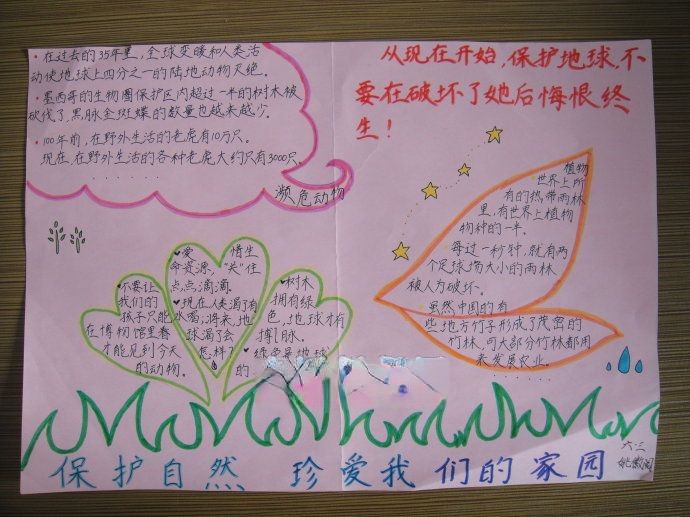 ·在过去的35年里，全球变暖和人类活
动使地球上四分之一的陆地动物灭绝。
·墨西哥的生物圈保护区内超过一半的树木被
砍伐了，黑脉金斑蝶的数量也越来越少。
·100年前，在野外生活的老虎有10万只。
现在，在野外生活的各种老虎大约只有3000只。
......
濒危动物
从现在开始，保护地球，不
要在破坏了她后悔恨终
生！
植物
世界上所
有的热带雨林
里，有世界上植物
物种的一半。
每过一秒钟，就有两
个足球场大小的雨林
被人为破坏。
虽然中国的有
些地方竹子形成了茂密的
竹林，可大部分竹林都用
来发展农业。
......
不要让
我们的
孩子只能
在博物馆里看
才能见到今天
的动物。
爱惜生
命资源，“关”住
点点滴滴
现在人类渴了有
水喝；将来，地
球渴了会
怎样？
树木
拥有绿
色，地球才有
搏脉。
绿色是地球
的
保护自然 珍爱我们的家园
六.三